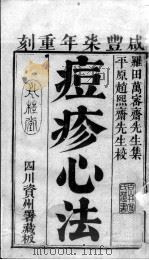 咸豐柒年重刻
羅田萬密齋先生集
平原趙熙齋先生校
痘疹心法
四川資州署藏板